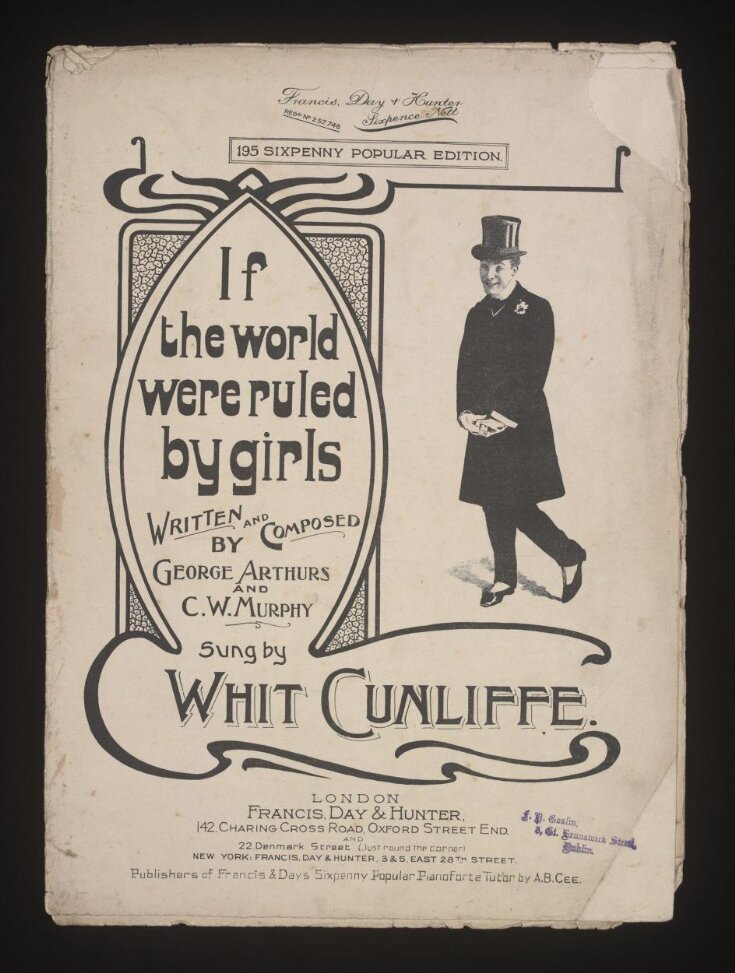 Francis, Day & Hunter
REGD Nº 257,748
Sixpence Nett
195 SIXPENNY POPULAR EDITION.
If
the world
were ruled
by girls
WRITTEN AND COMPOSED
BY
GEORGE ARTHURS
AND
C.W. MURPHY
Sung by
WHIT CUNLIFFE.
LONDON
FRANCIS, DAY & HUNTER,
142, CHARING CROSS ROAD, OXFORD STREET END.
AND
22, Denmark Street (Just round the corner)
NEW YORK: FRANCIS, DAY & HUNTER, 3 & 5, EAST 28TH STREET.
Publishers of Francis & Days Sixpenny Popular Pianoforte Tutor by A.B. CEE.
Goslin,
Gt. Brunswick Street,
Dublin.